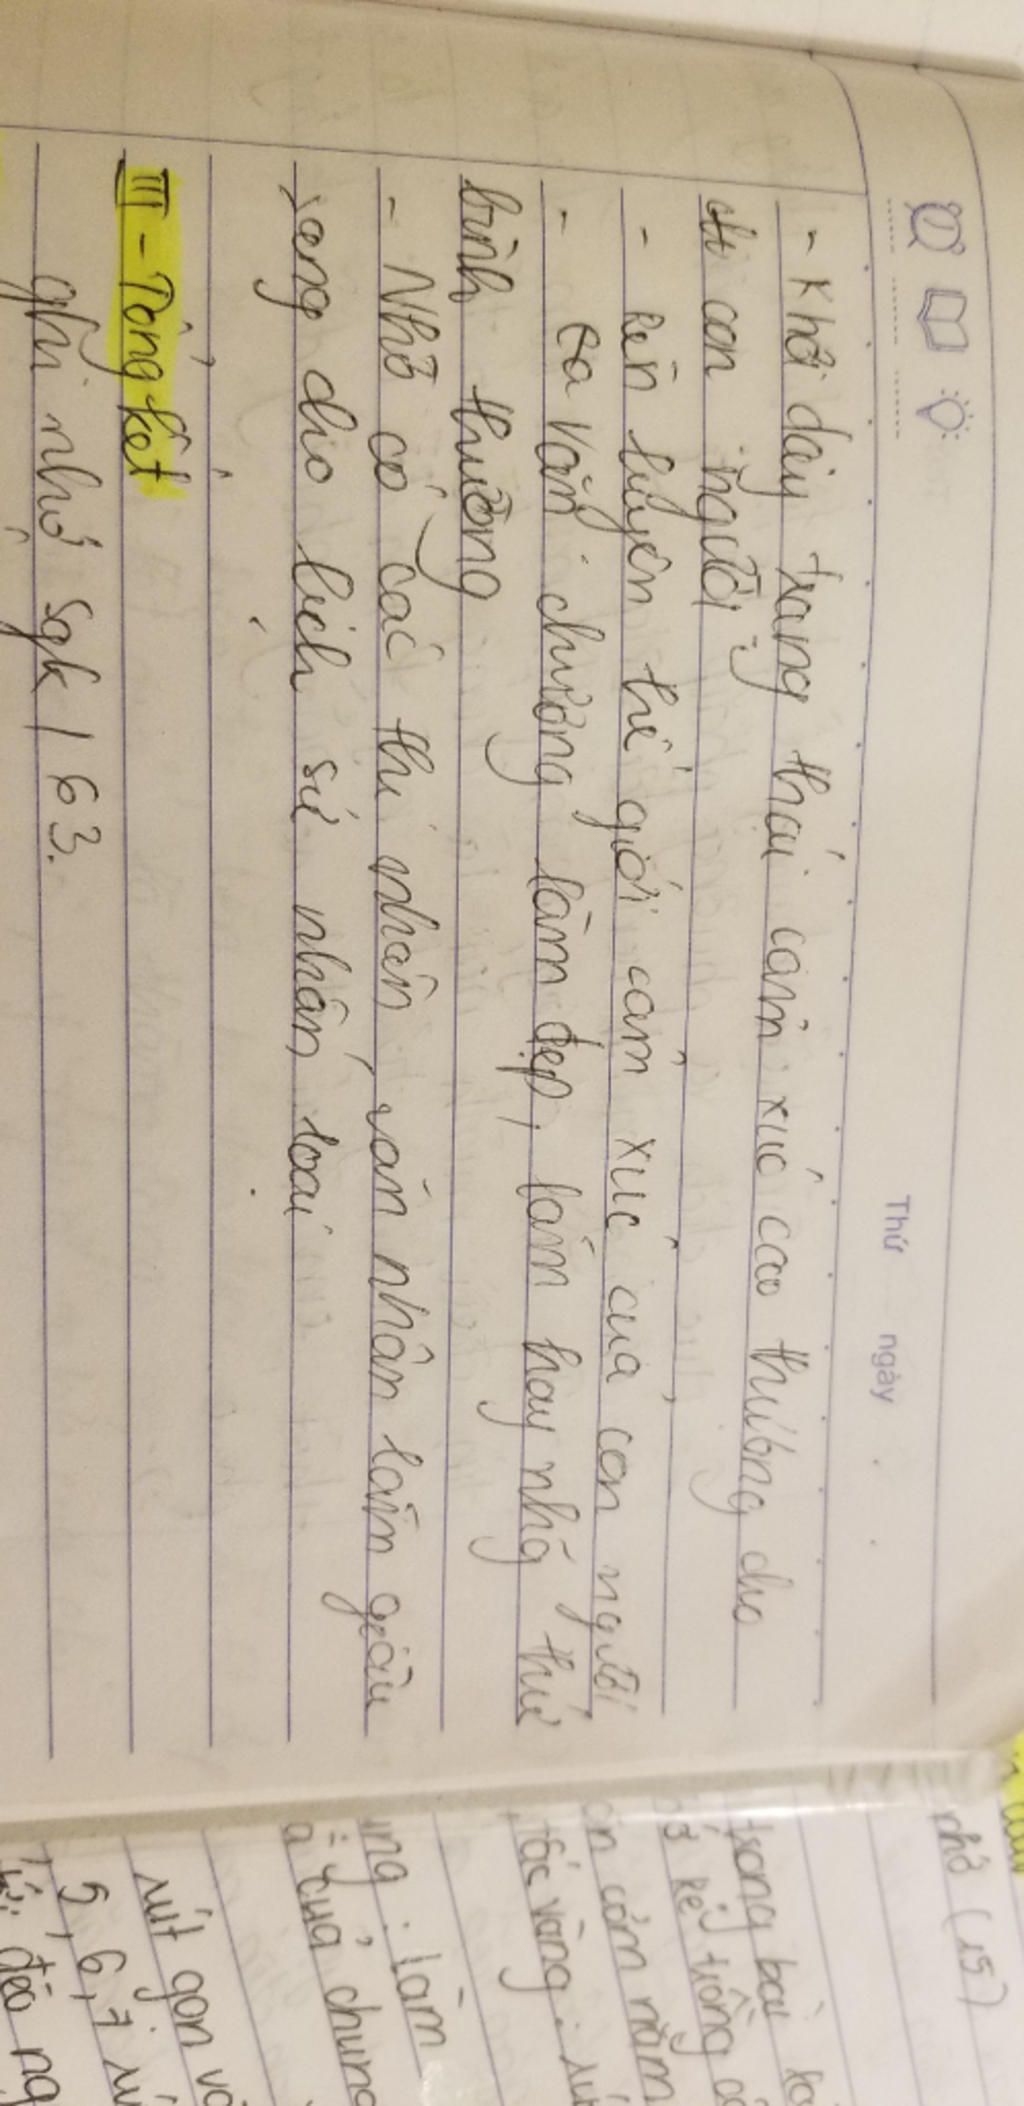 Thứ ngày
- Khơi dậy trạng thái cảm xúc cao thượng cho
con người
- Rèn luyện thế giới cảm xúc của con người
- Ca văn chương làm đẹp, làm hay những thứ
bình thường
- Nhờ có các thi nhân, văn nhân làm giàu
sang cho lịch sử nhân loại
III - Tổng kết
ghi nhớ sgk / 63.
nhớ (15)
trong bài
kẻ trồng
cơm nằm
tấc vàng.
làm
quả chung
rút gọn và
5, 6, 7
đèo